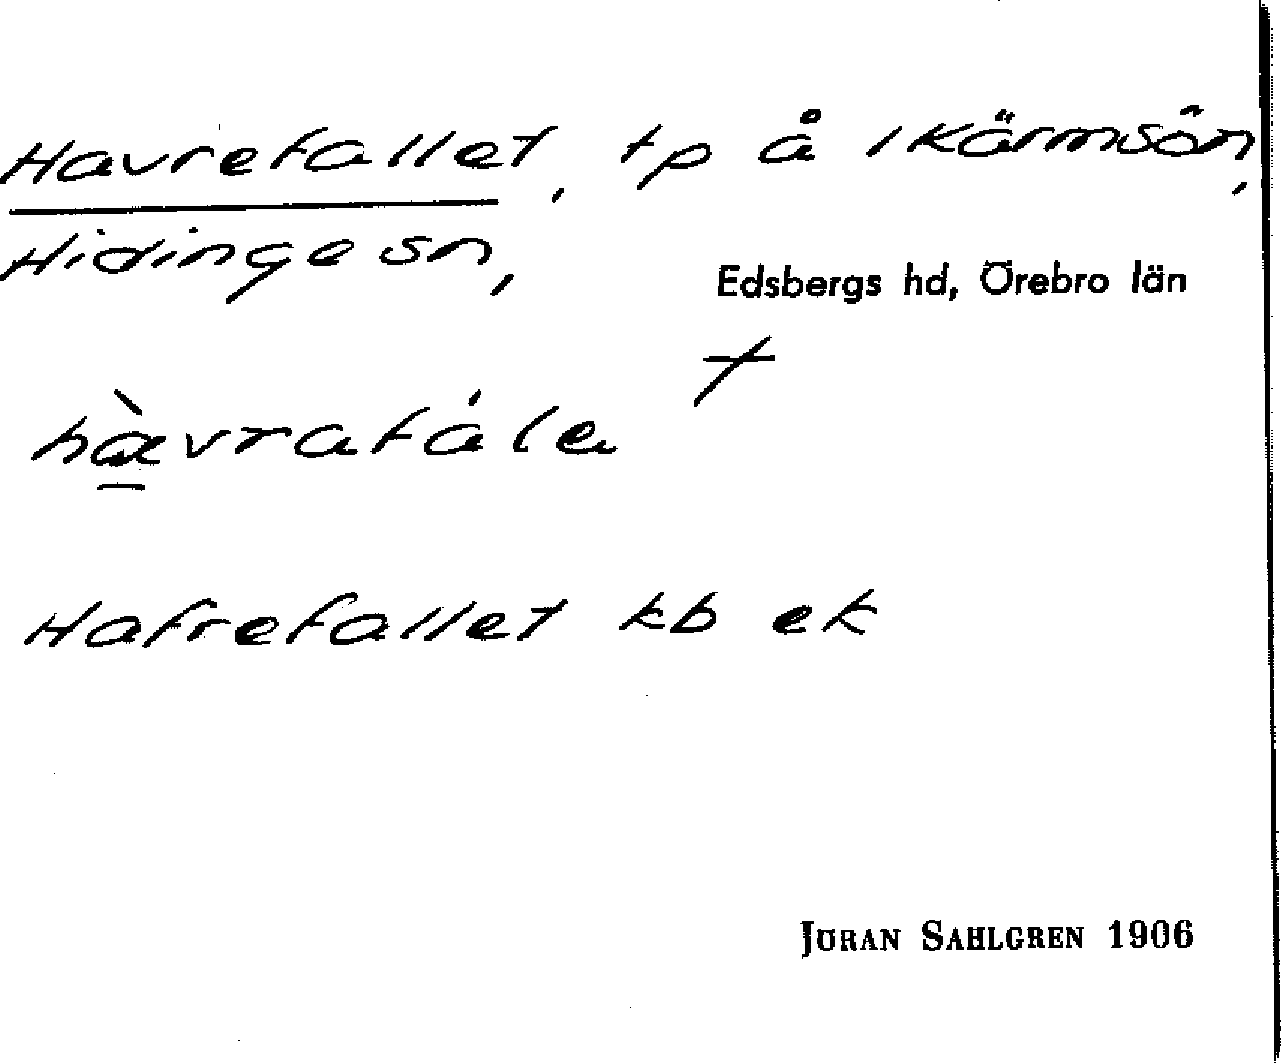 Havrefallet, tp å 1 Kärmsön,
Hidinge sn,
Edsbergs hd, Örebro län
+
hàvrafála
Hafrefallet kb ek
JÖRAN SAHLGREN 1906